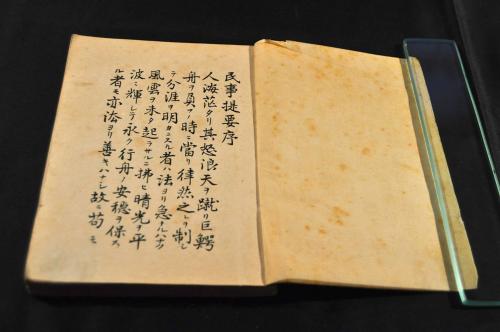 民事提要序
人海茫タリ其怒浪天ヲ蹴リ巨鰐
舟ヲ負フノ時ニ當リ律然之レヲ制シ
テ分涯ヲ明カニスル者ハ法ヨリ急ナルハナク
風雲ヲ未タ起ラサルニ拂ヒ晴光ヲ平
波ニ輝シテ永ク行舟ノ安穏ヲ保ス
ル者モ亦法ヨリ善キハナシ故ニ苟モ